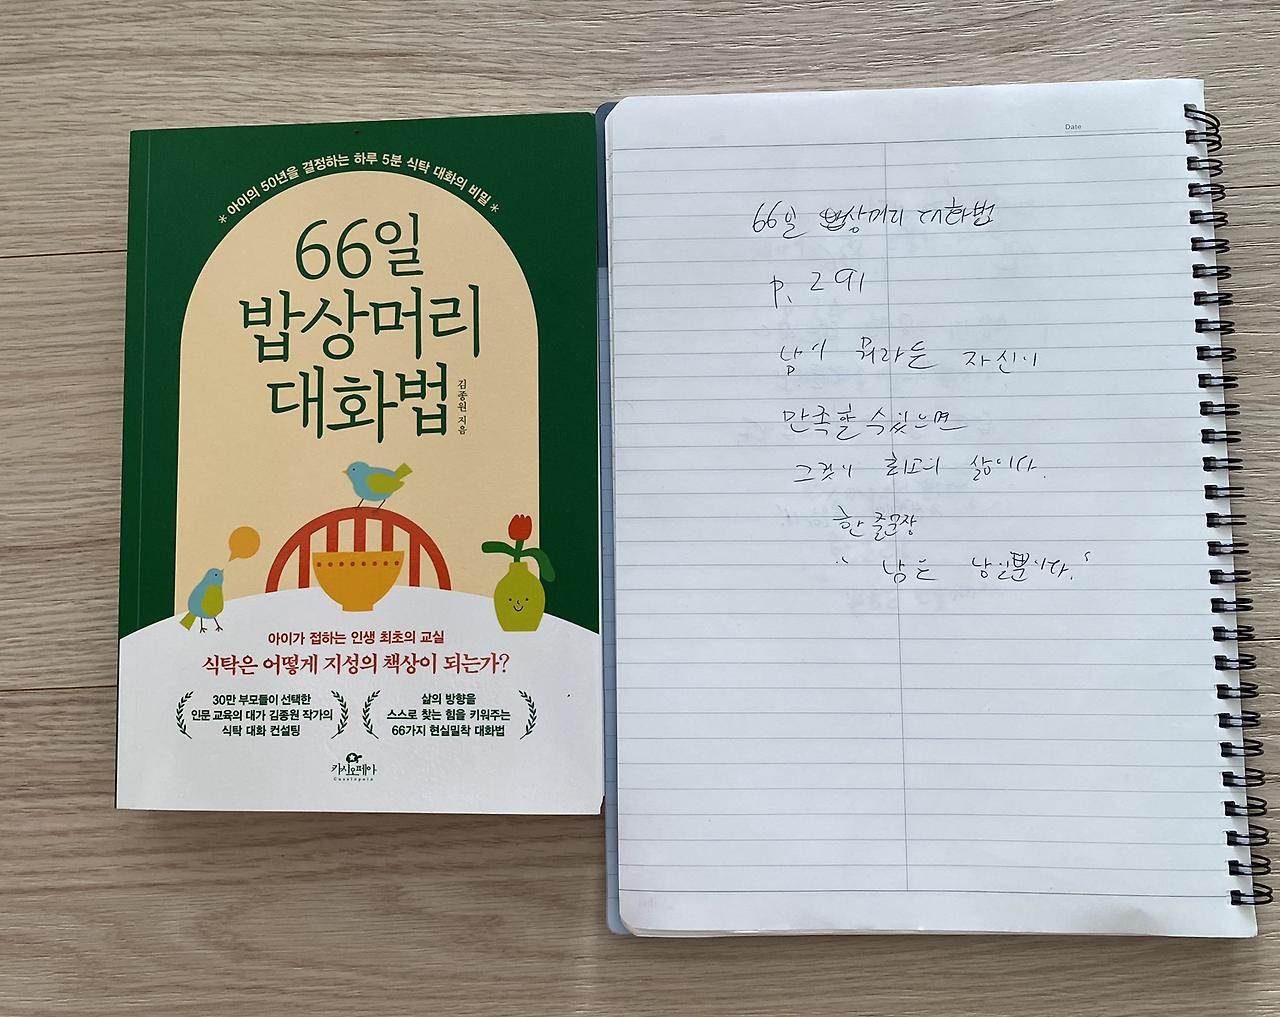 * 아이의 50년을 결정하는 하루 5분 식탁 대화의 비밀 *
66일
밥상머리
대화법
김종원 지음
아이가 접하는 인생 최초의 교실
식탁은 어떻게 지성의 책상이 되는가?
30만 부모들이 선택한
인문 교육의 대가 김종원 작가의
식탁 대화 컨설팅
삶의 방향을
스스로 찾는 힘을 키워주는
66가지 현실밀착 대화법
카시오페아
Cassiopeia
Date
66일 밥상머리 대화법
p. 291
남이 뭐라든 자신이
만족할 수 있으면
그것이 최고의 삶이다.
한 줄 문장
" 남은 남일뿐이다."